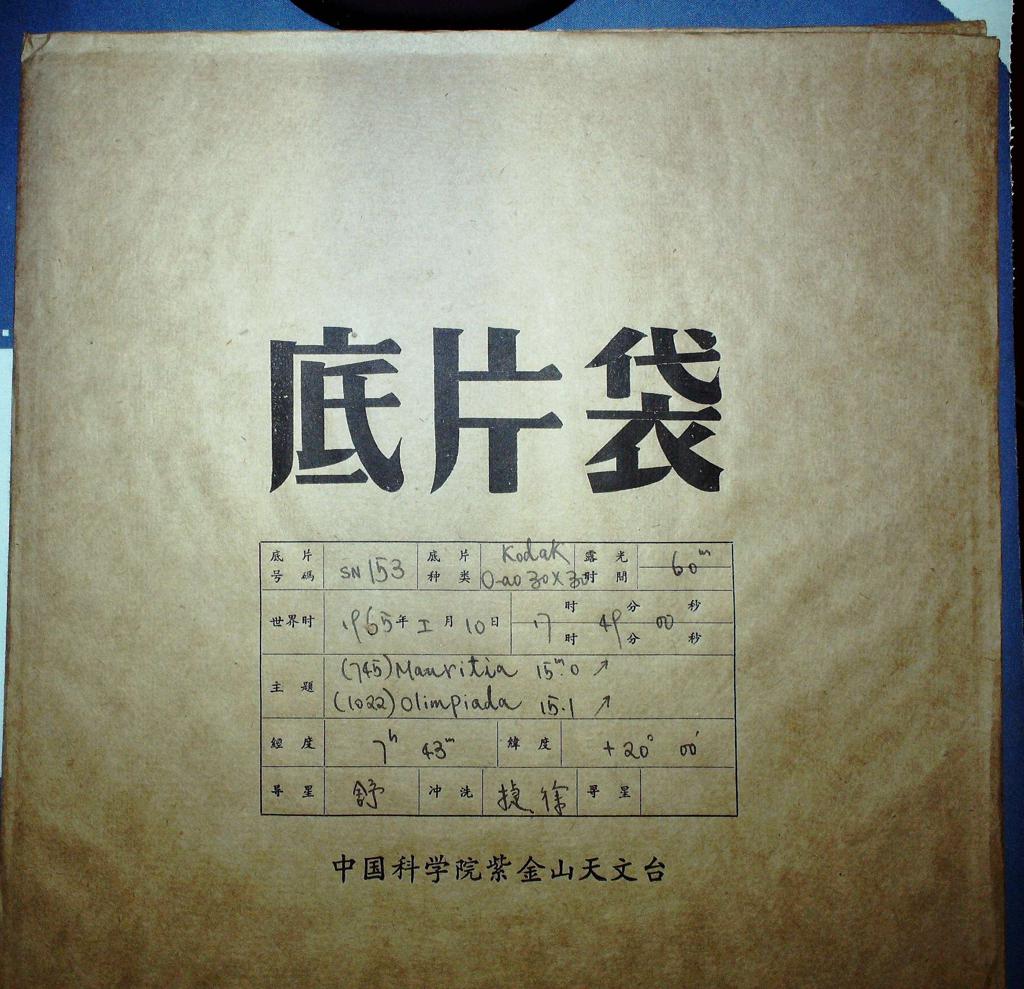 底片袋
底片号碼 SN 153 底片种类 Kodak O-ao 30X30 露光时間 60ᵐ
世界时 1965年 I月 10日 17时 49分 00秒
时 分 秒
主題 (745) Mauritia 15ᵐ.0 ↗
(1022) Olimpiada 15.1 ↗
經度 7ʰ 43ᵐ 緯度 +20° 00′
导星 舒 冲洗 徐 寻星
中国科学院紫金山天文台